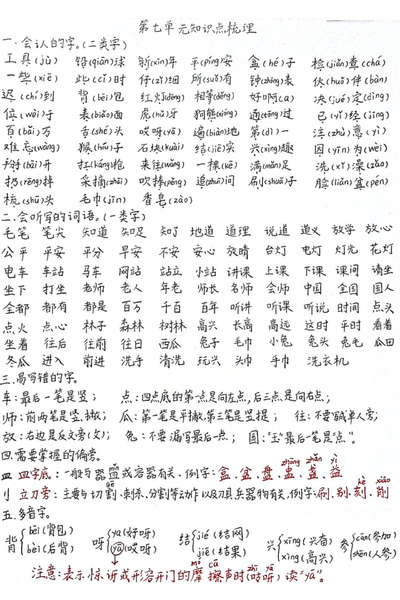 第七单元知识点梳理
一.会认的字。(二类字)
工具(jù) 铅(qiān)球 新(xīn)年 平(píng)安 盒(hé)子 检(jiǎn)查(chá)
一些(xiē) 此(cǐ)时 仔(zǐ)细 所(suǒ)有 钟(zhōng)表 伙(huǒ)伴(bàn)
迟(chí)到 背(bēi)包 红火 相等(děng) 好啊(a) 决(jué)定(dìng)
位(wèi)于 表(biǎo)面 虎(hǔ)牙 狗熊(xióng) 通(tōng)过 已(yǐ)经(jīng)
百(bǎi)万 舌(shé)头 哎呀(yā) 遍(biàn)地 第(dì)一 注(zhù)意(yì)
难忘(wàng) 猴(hóu)子 石块(kuài) 结(jiē)实 兴(xīng)趣 因(yīn)为(wèi)
掰(bāi)开 扛(káng)枪 来往(wǎng) 一棵(kē) 满(mǎn)足 洗(xǐ)澡(zǎo)
扔(rēng)掉 采摘(zhāi) 吹捧(pěng) 追(zhuī)问 刷(shuā)子 脸(liǎn)盆(pén)
梳(shū)头 毛巾(jīn) 香皂(zào)
二.会听写的词语。(一类字)
毛笔 笔尖 知道 知足 早足 知了 地道 道理 说道 道义 放学 放心
公平 平安 平分 早安 不安 安心 放晴 台灯 电灯 灯光 花灯
电车 车站 马车 网站 站立 小站 讲课 上课 下课 课间 请坐
坐下 打坐 老师 老人 年老 师长 名师 会师 中国 全国 国人
全都 都有 都是 百万 千百 百年 听讲 听课 听说 时间 点头
点火 点心 林子 森林 树林 高兴 长高 高远 这时 平时 看着
坐着 往后 往前 往日 西瓜 兔子 毛巾 小兔 兔头 兔毛 瓜田
冬瓜 进入 前进 洗手 清洗 玩兴 头巾 手巾 洗衣机
三.易写错的字。
车:最后一笔是竖; 点:四点底的第一点是向左点,后三点是向右点;
师:前两笔是竖、撇; 瓜:第一笔是平撇,第三笔是竖提; 往:不要写成单人旁;
放:右边是反文旁(攵); 兔:不要漏写最后一点; 国:"玉"最后一笔是"点"。
四.需要掌握的偏旁。
皿 皿字底:一般与器皿或容器有关。例字:盒、盆、盘、盅、盏、益
刂 立刀旁:主要与切割、刺杀、分割等动作以及刀具兵器物有关,例字:刷、别、刻、削
五.多音字。
背 bēi(背包) bèi(后背)
呀 ya(好呀) yā(哎呀)
结 jié(结网) jiē(结果)
兴 xīng(兴奋) xìng(高兴)
参 cān(参加) shēn(人参)
注意:表示惊讶或形容开门的摩擦声时(咕呀)读"yā"。